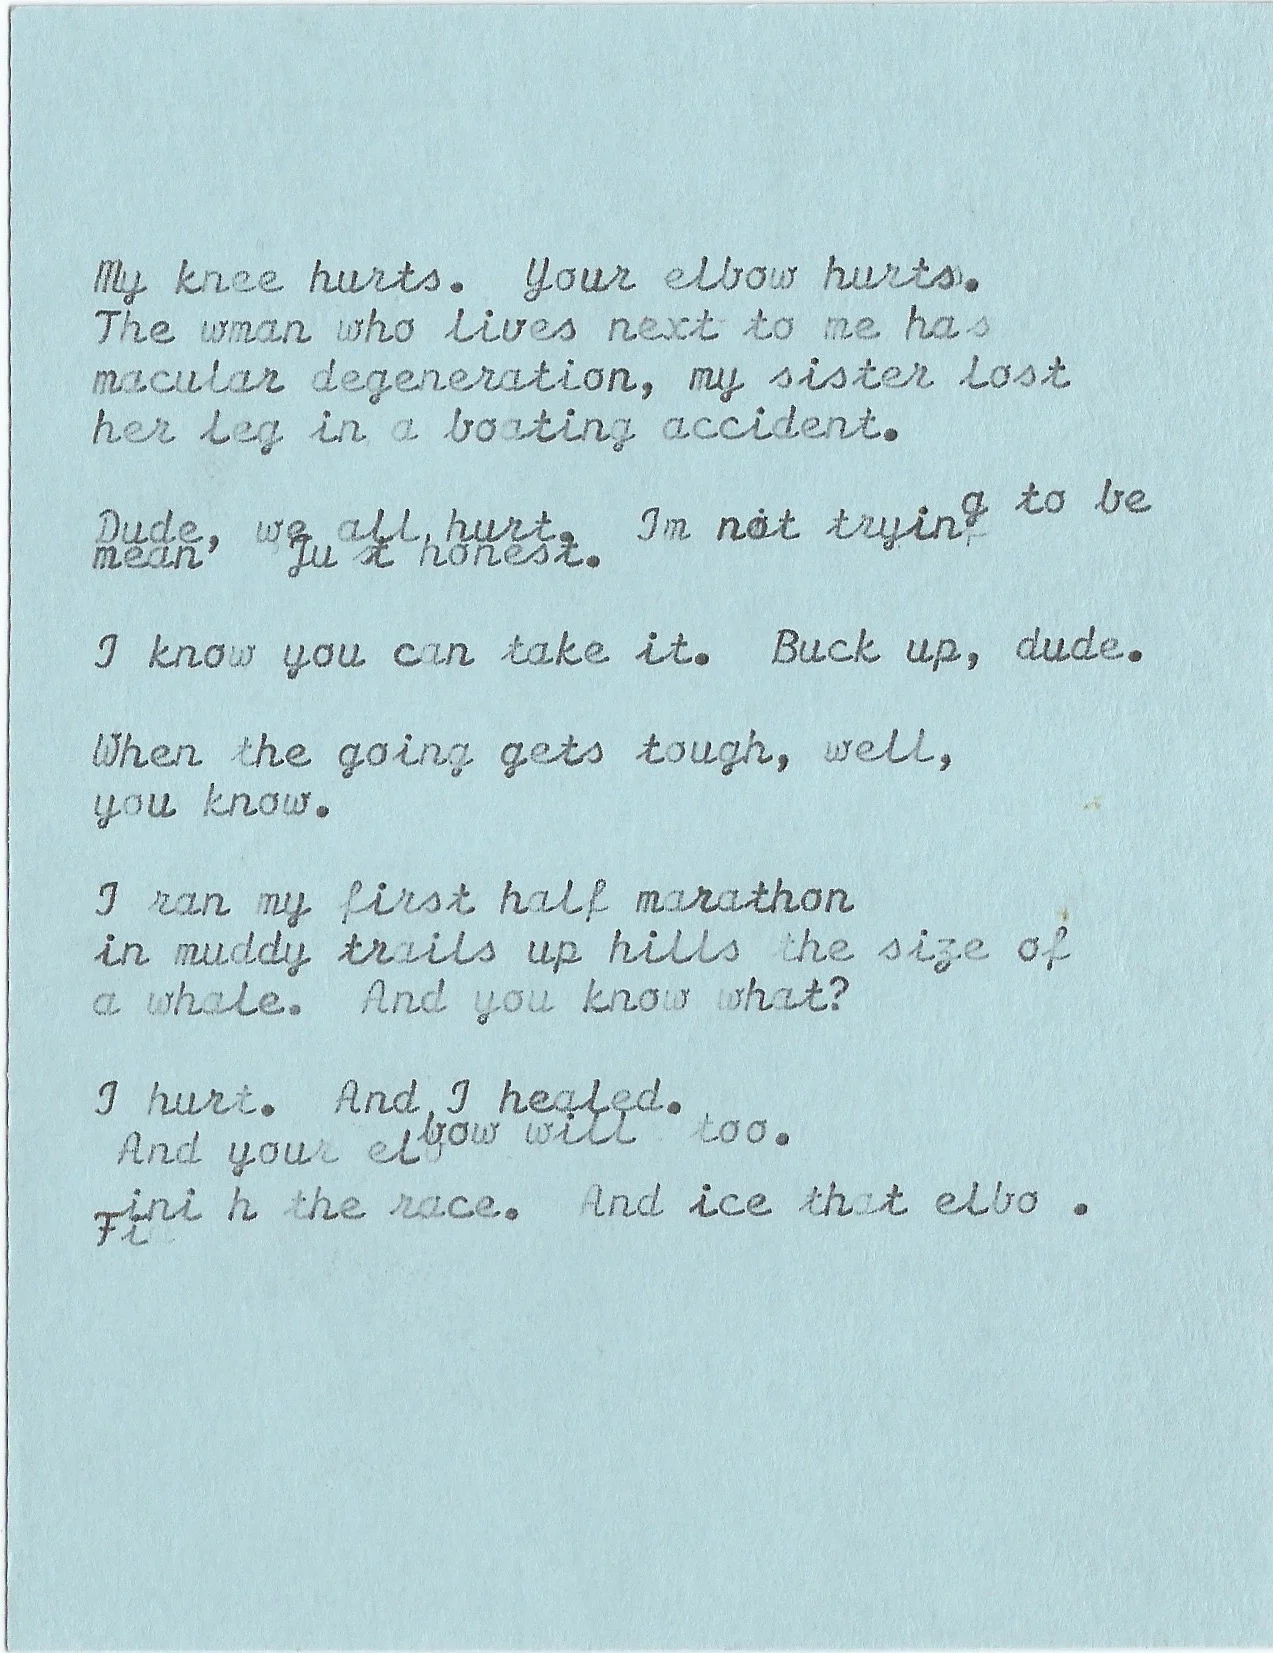 My knee hurts. Your elbow hurts.
The wman who lives next to me has
macular degeneration, my sister lost
her leg in a boating accident.
Dude, we all hurt. Im not trying to be
mean Ju t honest.
I know you can take it. Buck up, dude.
When the going gets tough, well,
you know.
I ran my first half marathon
in muddy trails up hills the size of
a whale. And you know what?
I hurt. And I healed.
And your elbow will too.
Fini h the race. And ice that elbo .